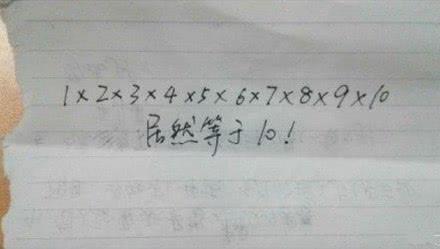 1×2×3×4×5×6×7×8×9×10
居然等于10!